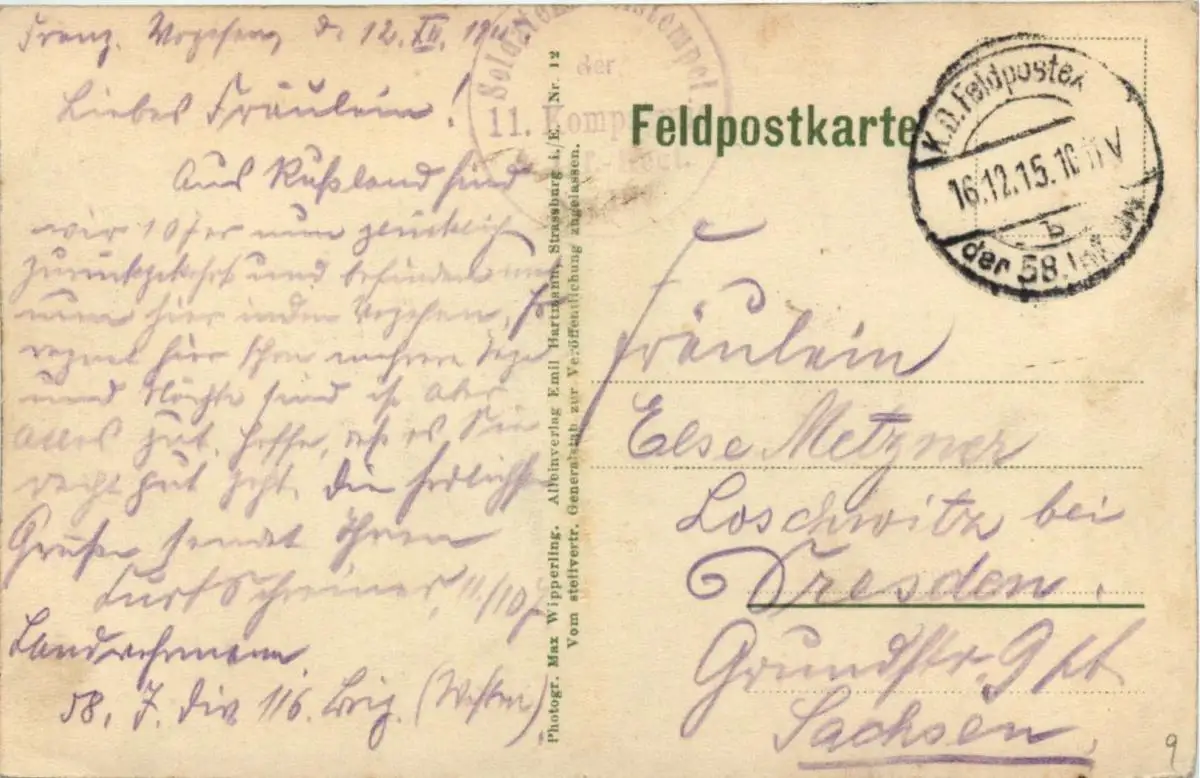 Franz. Vogesen, d. 12. XII. 15
Liebes Fräulein!
Aus Rußland sind
wir 107er nun glücklich
zurückgekehrt und befinden uns
nun hier in den Vogesen. Es
regnet hier schon mehrere Tage
und Nächte sind ist aber
alles gut. Hoffe, daß es Sie
recht gut geht. Die herzlichsten
Grüße sendet Ihnen
Kurt Scheiner, 11/107
Landwehrmann
58. J. Div 116. Brig. (Westen)
Soldaten Briefstempel
der
11. Komp
Photogr. Max Wipperling. Alleinverlag Emil Hartmann, Strassburg i./E. Nr. 12
Vom stellvertr. Generalstab zur Veröffentlichung zugelassen.
Feldpostkarte
K.D. Feldpostex
16.12.15. 10-11 V
b
der 58. Inf. Div.
Fräulein
Else Metzner
Loschwitz bei
Dresden.
Grundstr. 9 ptr
Sachsen.
9